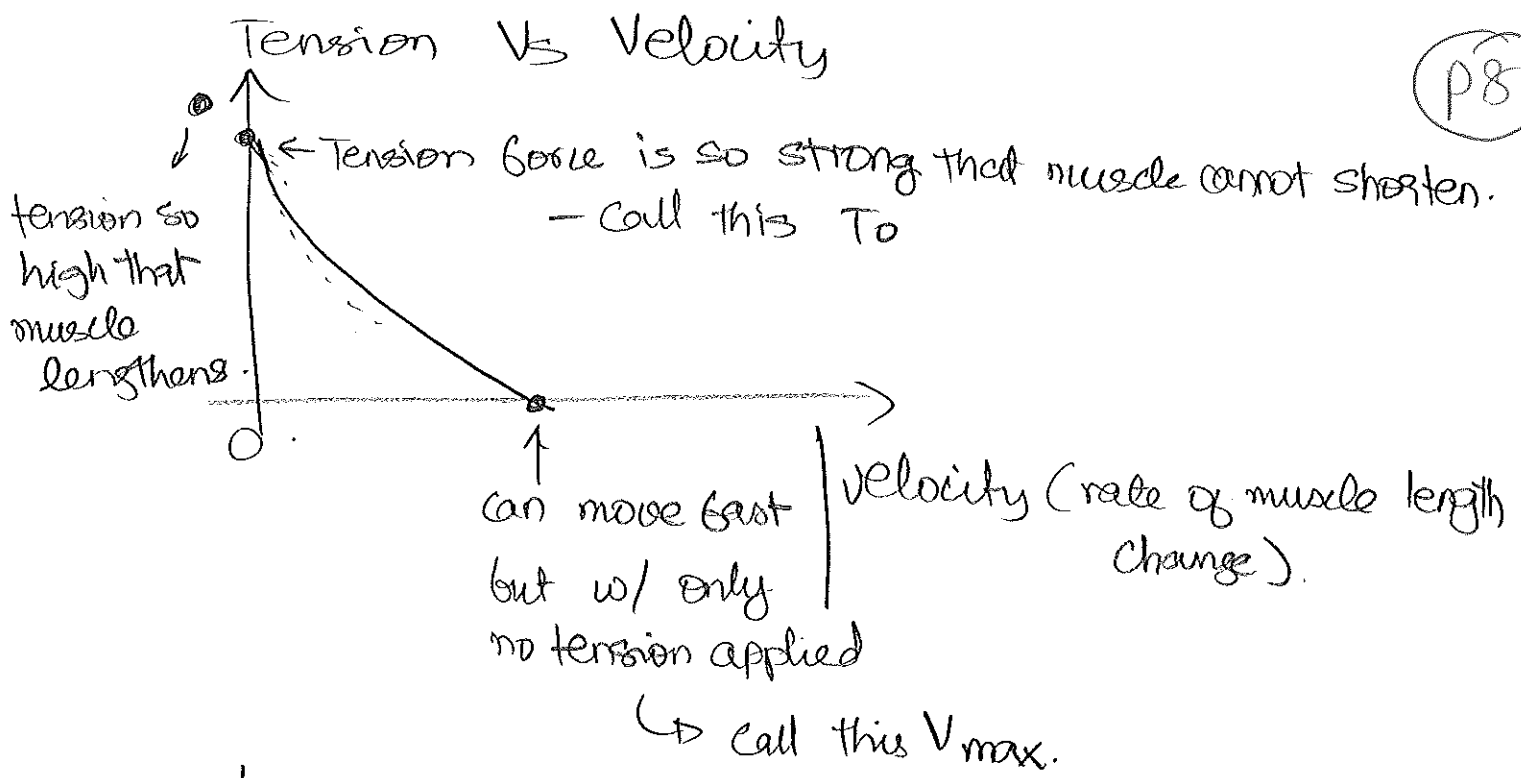 Tension Vs Velocity
p8
← Tension force is so strong that muscle cannot shorten.
- Call this To
tension so
high that
muscle
lengthens.
O
can move fast
but w/ only
no tension applied
↳ Call this Vmax.
velocity (rate of muscle length
change).